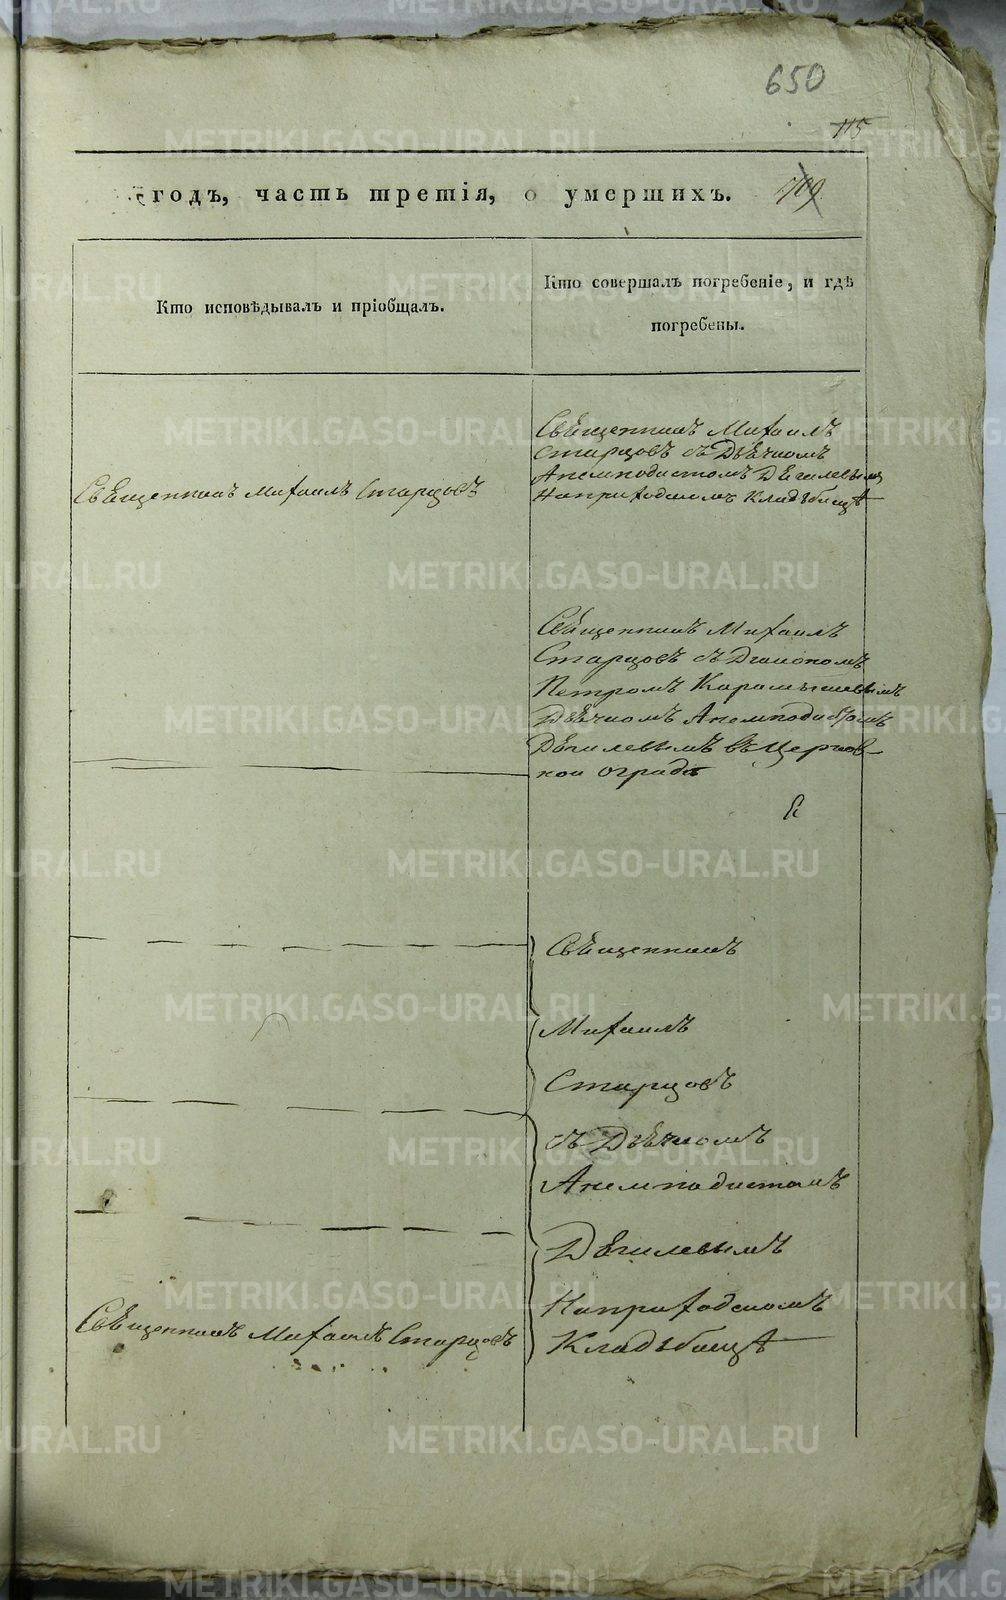 650
115
годъ, часть третія, о умершихъ. 709
Кто исповѣдывалъ и пріобщалъ.
Кто совершалъ погребеніе, и гдѣ
погребены.
Священникъ Михаилъ Старцовъ
Священникъ Михаилъ
Старцовъ съ Дьячкомъ
Анемподистомъ Дѣгилевымъ
На приходскомъ Кладъбищѣ
Священникъ Михаилъ
Старцовъ съ Діакономъ
Петромъ Карамышевымъ
Дьячкомъ Анемподистомъ
Дѣгилевымъ въ Церков-
ной оградѣ
Священникъ
Михаилъ
Старцовъ
съ Дьячкомъ
Анемподистомъ
Дѣгилевымъ
На приходскомъ
Кладъбищѣ
Священникъ Михаилъ Старцовъ
METRIKI.GASO-URAL.RU